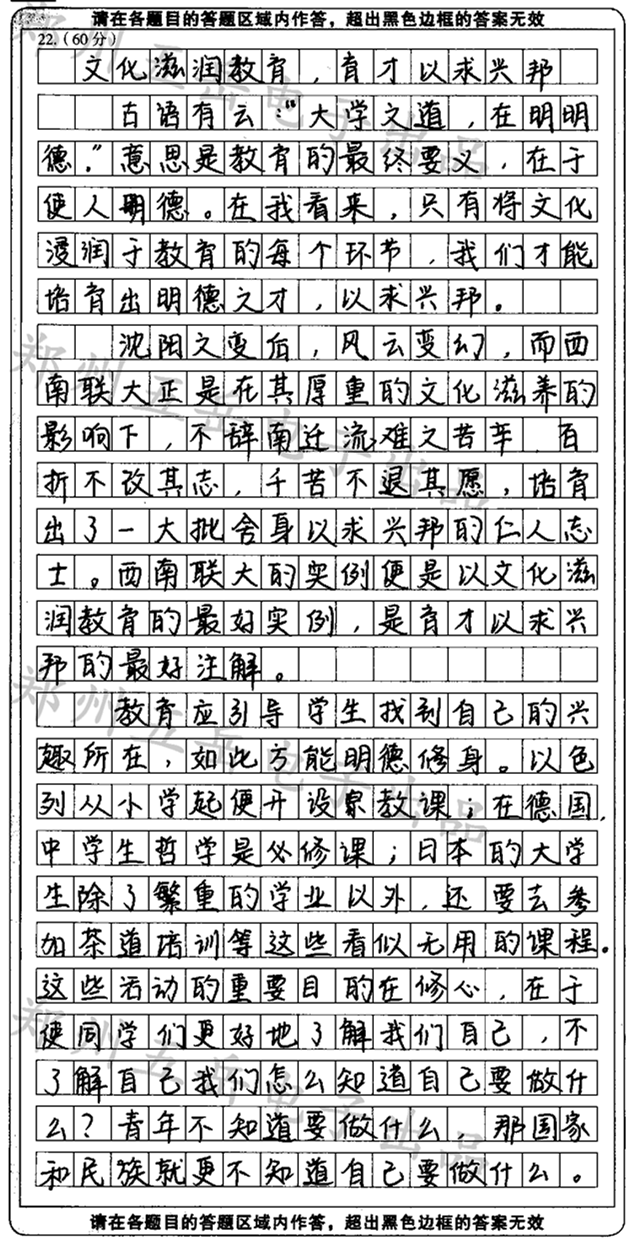 请在各题目的答题区域内作答，超出黑色边框的答案无效
22.（60分）
文化滋润教育，育才以求兴邦
古语有云：“大学之道，在明明
德。”意思是教育的最终要义，在于
使人明德。在我看来，只有将文化
浸润于教育的每个环节，我们才能
培育出明德之才，以求兴邦。
沈阳之变后，风云变幻，而西
南联大正是在其厚重的文化滋养的
影响下，不辞南迁流难之苦辛，百
折不改其志，千苦不退其愿，培育
出了一大批舍身以求兴邦的仁人志
士。西南联大的实例便是以文化滋
润教育的最好实例，是育才以求兴
邦的最好注解。
教育应引导学生找到自己的兴
趣所在，如此方能明德修身。以色
列从小学起便开设家教课；在德国，
中学生哲学是必修课；日本的大学
生除了繁重的学业以外，还要去参
加茶道培训等这些看似无用的课程。
这些活动的重要目的在修心，在于
使同学们更好地了解我们自己，不
了解自己我们怎么知道自己要做什
么？青年不知道要做什么，那国家
和民族就更不知道自己要做什么。
请在各题目的答题区域内作答，超出黑色边框的答案无效
郑州五岳电子出品
郑州五岳电子出品
郑州五岳电子出品
郑州五岳电子出品